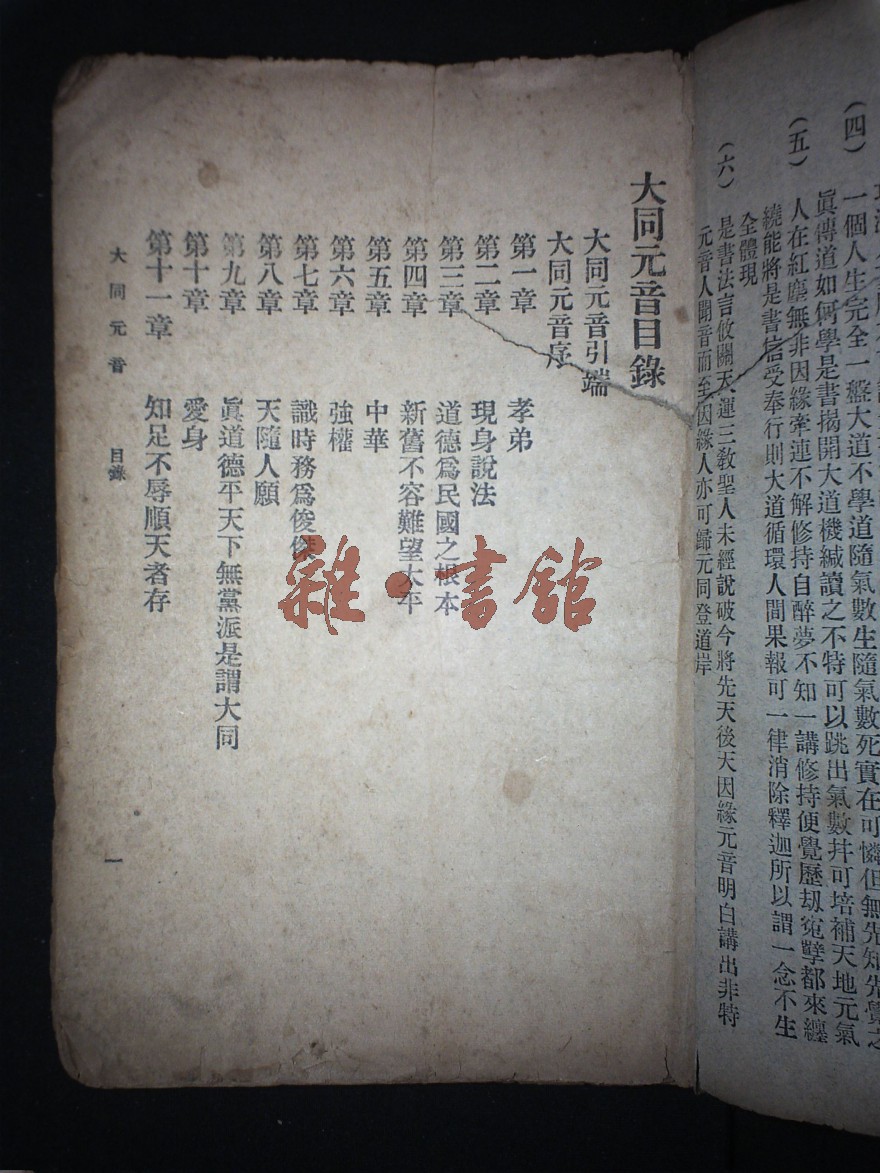 (四) 一個人生完全一盤大道不學道隨氣數生隨氣數死實在可憐但無先知先覺之
眞傳道如何學是書揭開大道機緘讀之不特可以跳出氣數幷可培補天地元氣
(五) 人在紅塵無非因緣牽連不解修持自醉夢不知一講修持便覺歷刼寃孽都來纏
繞能將是書信受奉行則大道循環人間果報可一律消除釋迦所以謂一念不生
全體現
(六) 是書法言攸關天運三敎聖人未經說破今將先天後天因緣元音明白講出非特
元音人聞音而至因緣人亦可歸元同登道岸
大同元音目錄
大同元音引端
大同元音序
第一章 孝弟
第二章 現身說法
第三章 道德爲民國之根本
第四章 新舊不容難望太平
第五章 中華
第六章 強權
第七章 識時務爲俊傑
第八章 天隨人願
第九章 眞道德平天下無黨派是謂大同
第十章 愛身
第十一章 知足不辱順天者存
大同元音 目錄 一
雜·書館